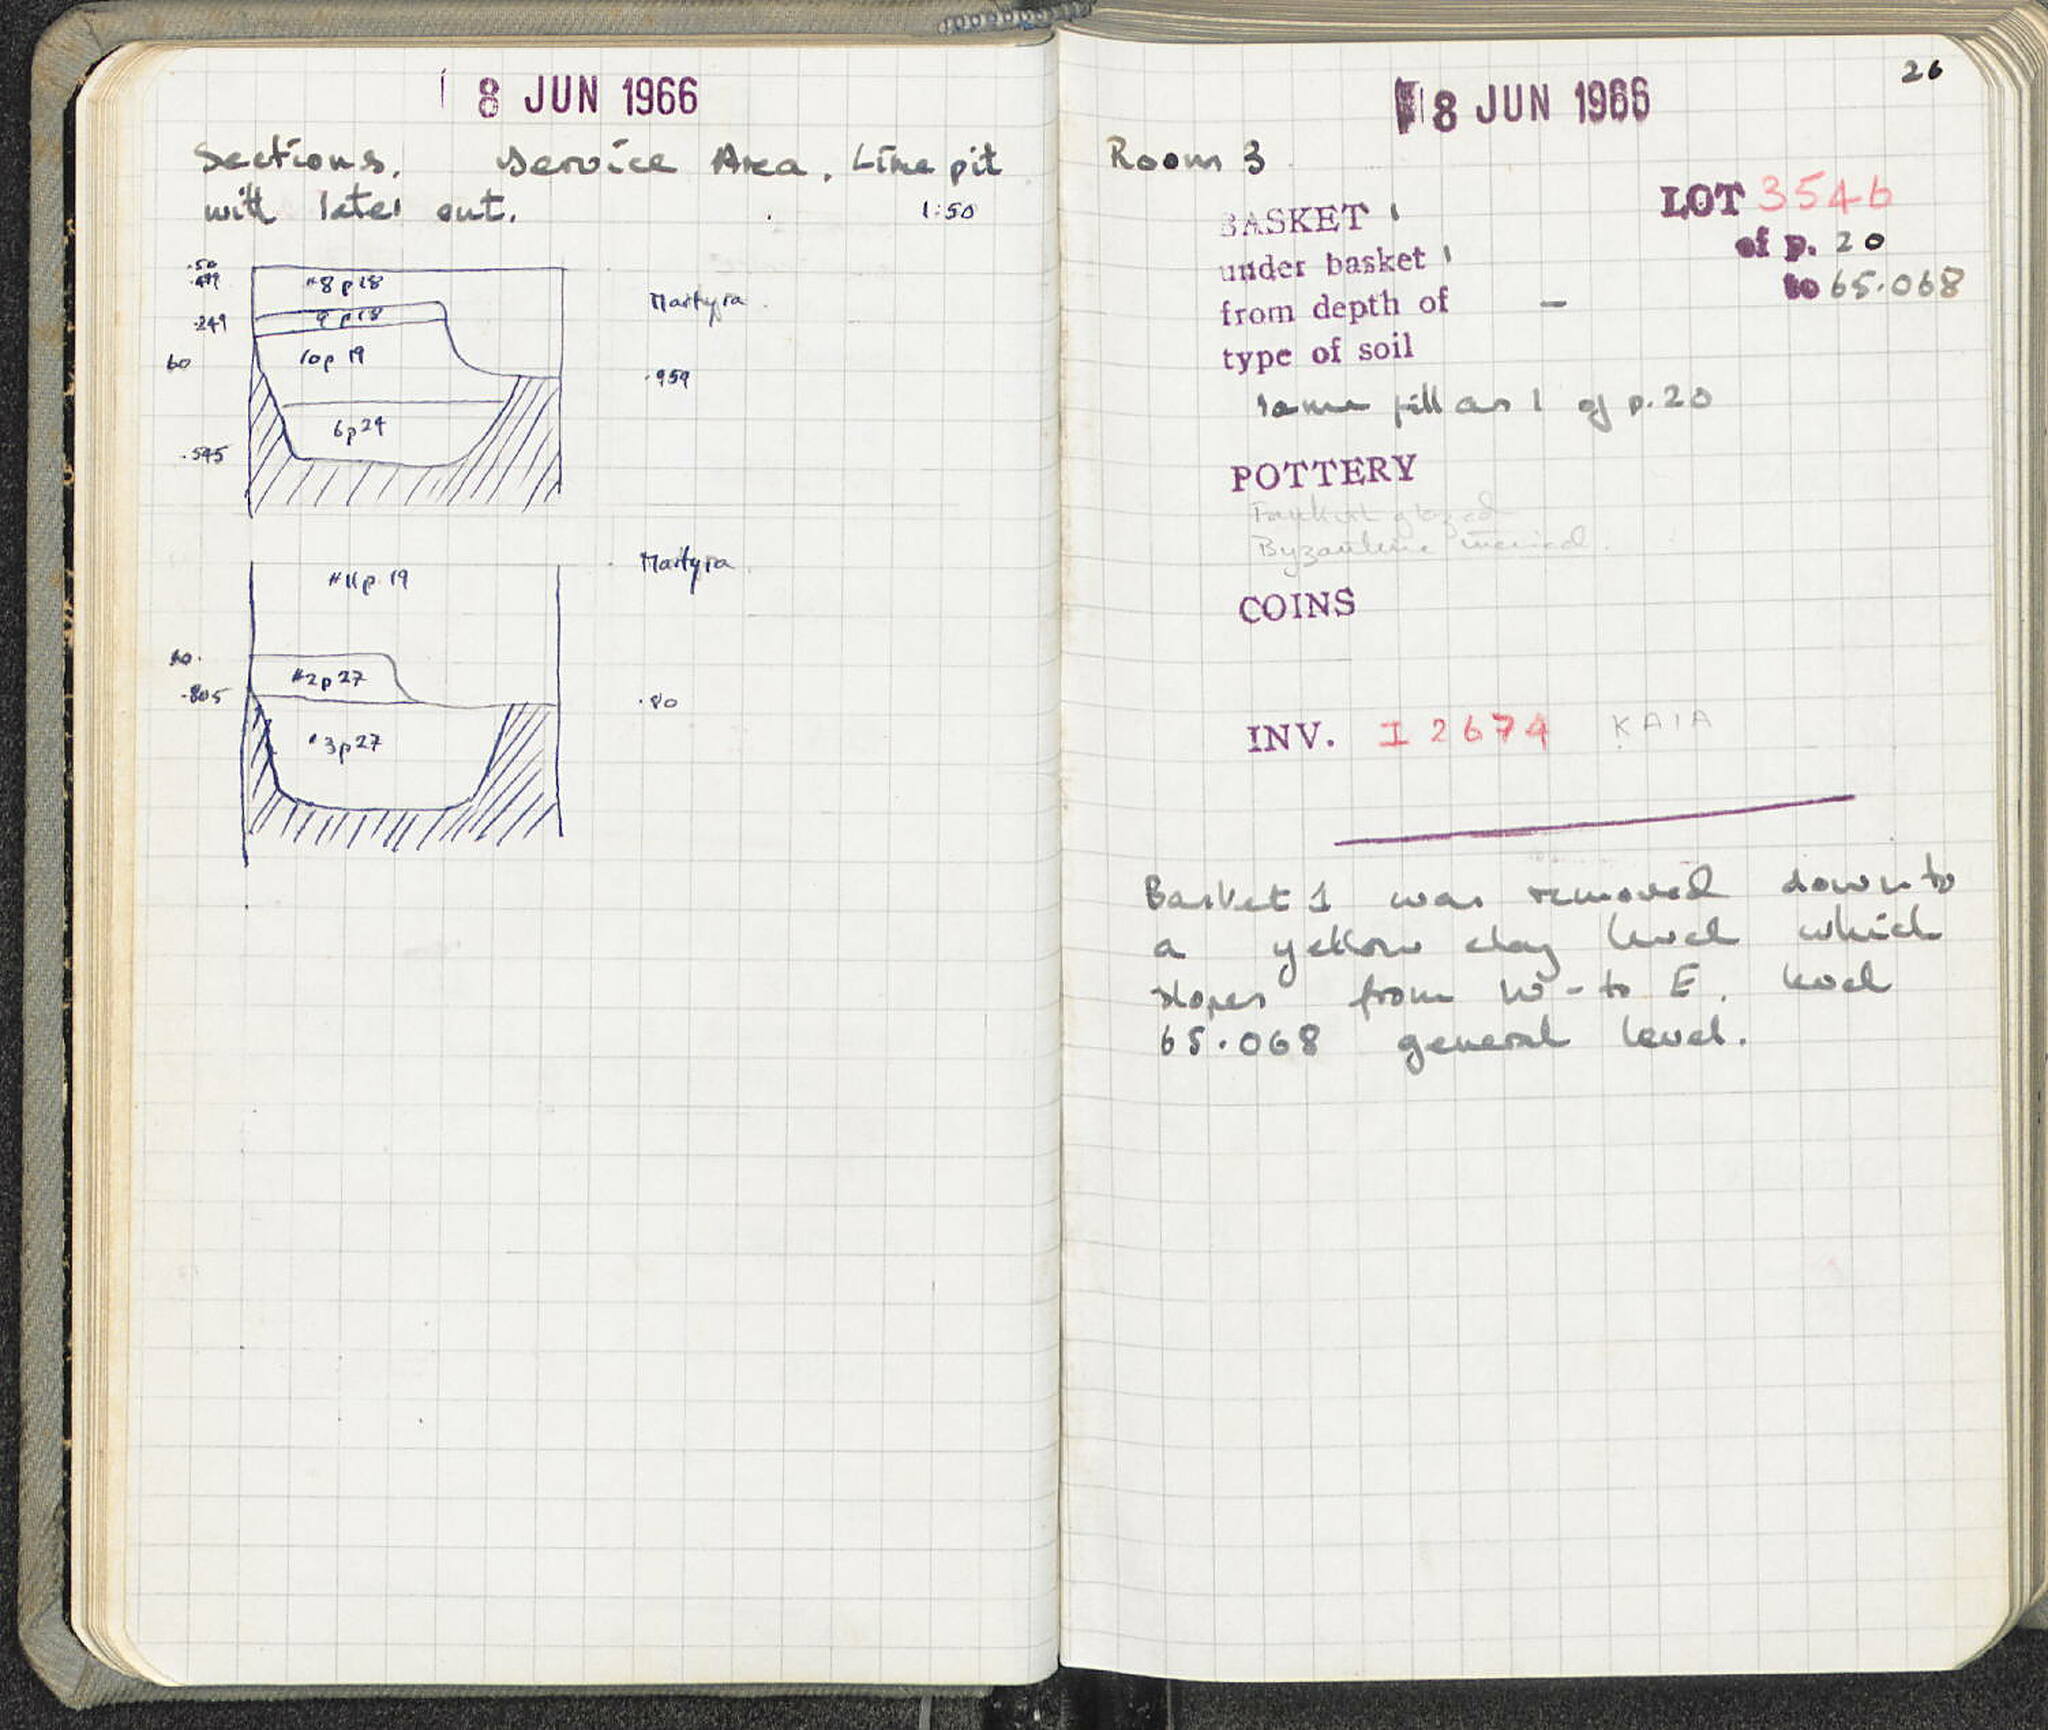 8 JUN 1966
Sections. Service Area. Lime pit
with later cut. 1:50
.50
.499
#8p18
Martyra
.249
9 p18
60
10p 19
.959
6p24
.545
#11p.19
Martyra
60.
#2p27
.805
.80
#3p27
26
8 JUN 1966
Room 3
BASKET 1
LOT 3546
under basket 1
of p. 20
from depth of —
to 65.068
type of soil
same fill as 1 of p.20
POTTERY
glazed
Byzantine incised.
COINS
INV. I 2674 KAIA
Basket 1 was removed down to
a yellow clay level which
slopes from W - to E. level
65.068 general level.